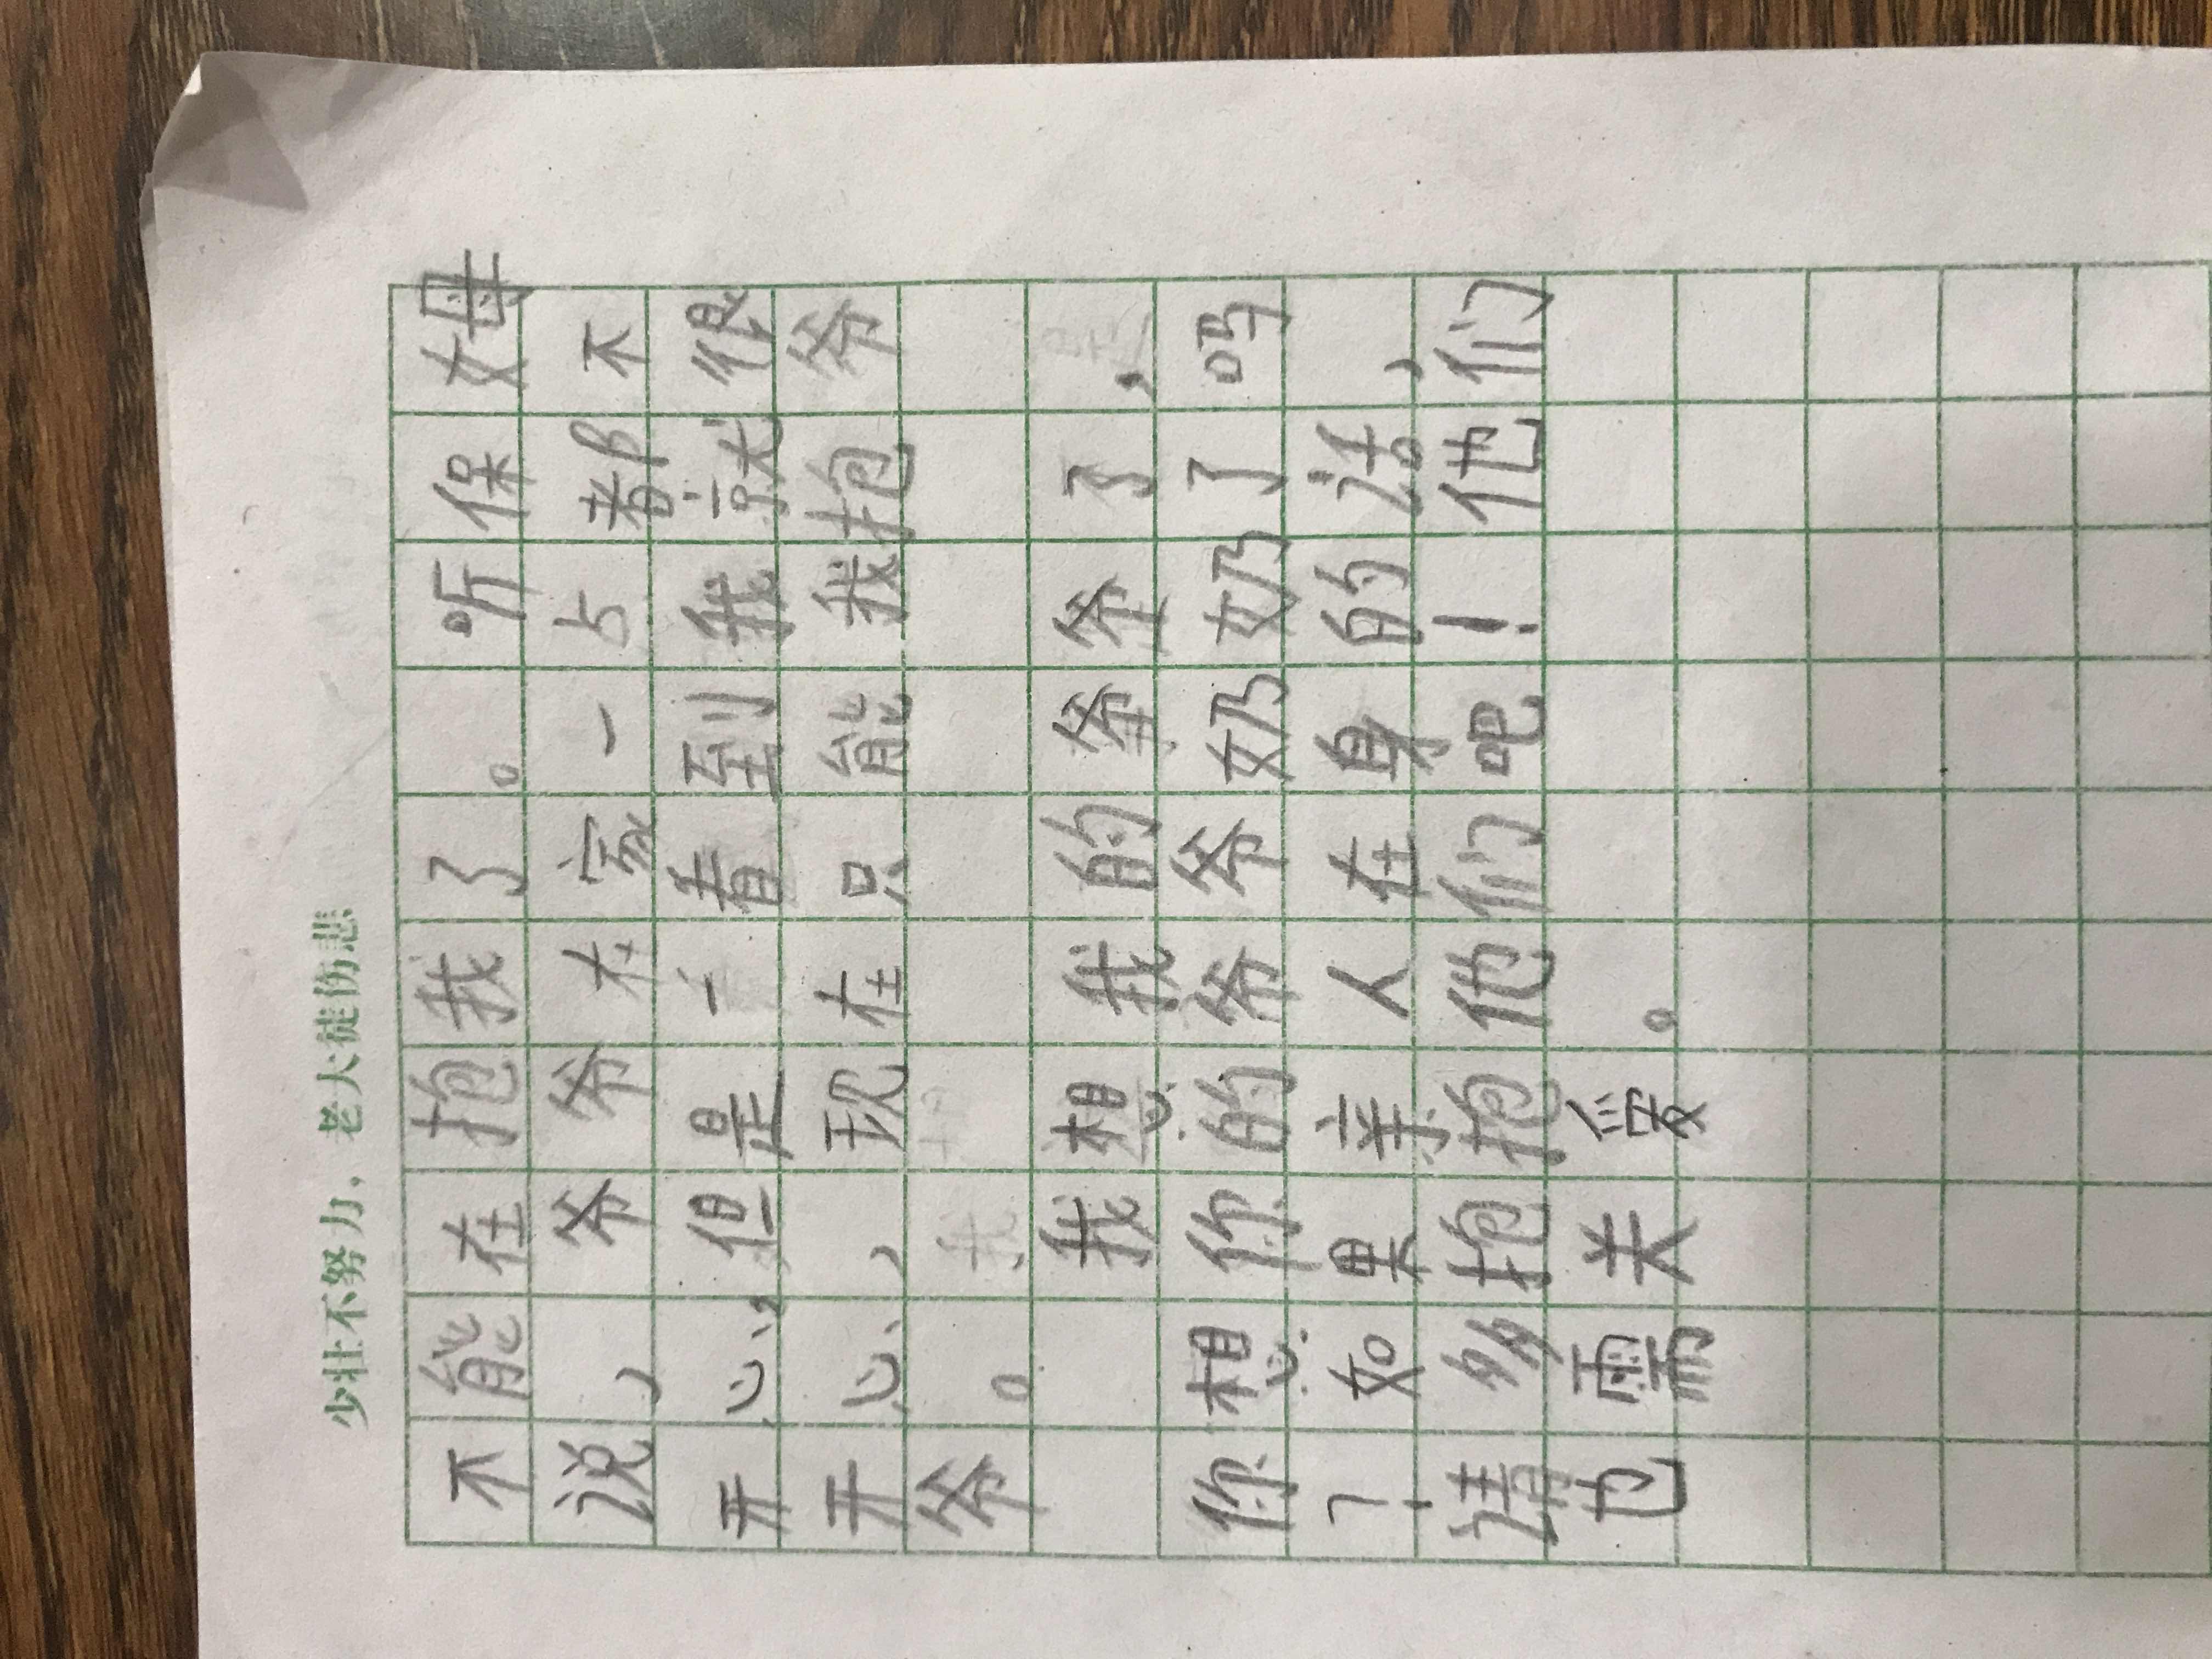 少壮不努力，老大徒伤悲
不能在抱我了。听保姆
说，爷爷在家一占都不
开心，但是一看到我就很
开心，现在只能我抱爷
爷。
我想我的爷爷了，
你想你的爷爷奶奶了吗
？如果亲人在身的话，
请多抱抱他们吧！他们
也需关爱。